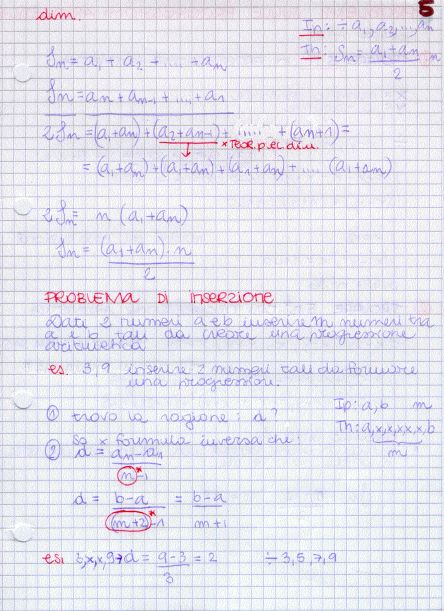 5
dim.
Ip: ÷ a₁, a₂, ..., an
Th: Sn = a₁+an/2 n
Sn = a₁ + a₂ + .... + an
Sn = an + an-1 + .... + a1
2Sn = (a₁+an) + (a₂+an-1) + ...... + (an+1) =
* Teor. prec. dim.
= (a₁+an) + (a₁+an) + (a₁+an) + .... (a₁+an)
2Sn = n (a₁+an)
Sn = (a₁+an) . n / 2
PROBLEMA DI INSERZIONE
Dati 2 numeri a e b inserire m numeri tra
a e b tali da creare una progressione
aritmetica
es. 3,9 inserire 2 numeri tali da formare
una progressione.
① trovo la ragione: d?
Ip: a, b m
Th: a,x,x,x,x,x,b
m
② So x formula inversa che:
d = an-a1 / n*-1
d = b-a / (m+2)*-1 = b-a / m+1
es: 3,x,x,9 → d = 9-3 / 3 = 2 ÷ 3,5,7,9